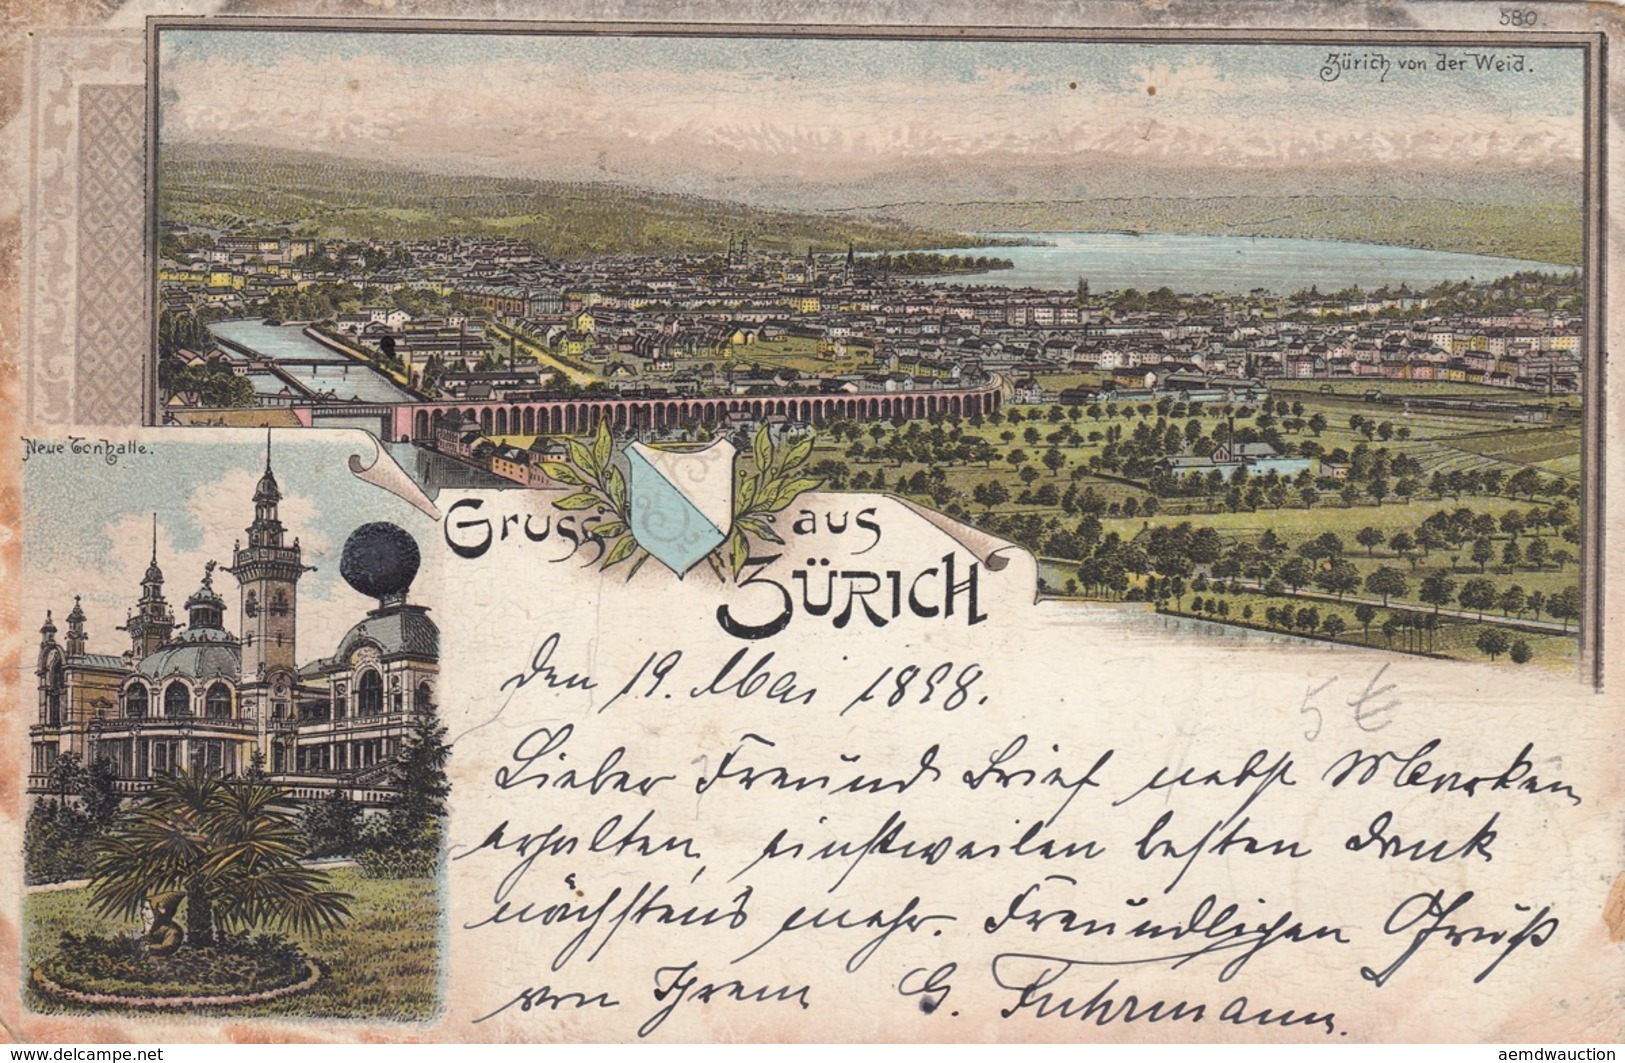 580.
Zürich von der Weid.
Neue Tonhalle.
Gruss aus
ZÜRICH
den 19. Mai 1898.
5 €
Lieber Freund Brief nebst Marken
erhalten, einstweilen besten Dank
nächstens mehr. Freundlichen Gruß
von Ihrem G. Fuhrmann.
https://www.delcampe.net
aemdwauction